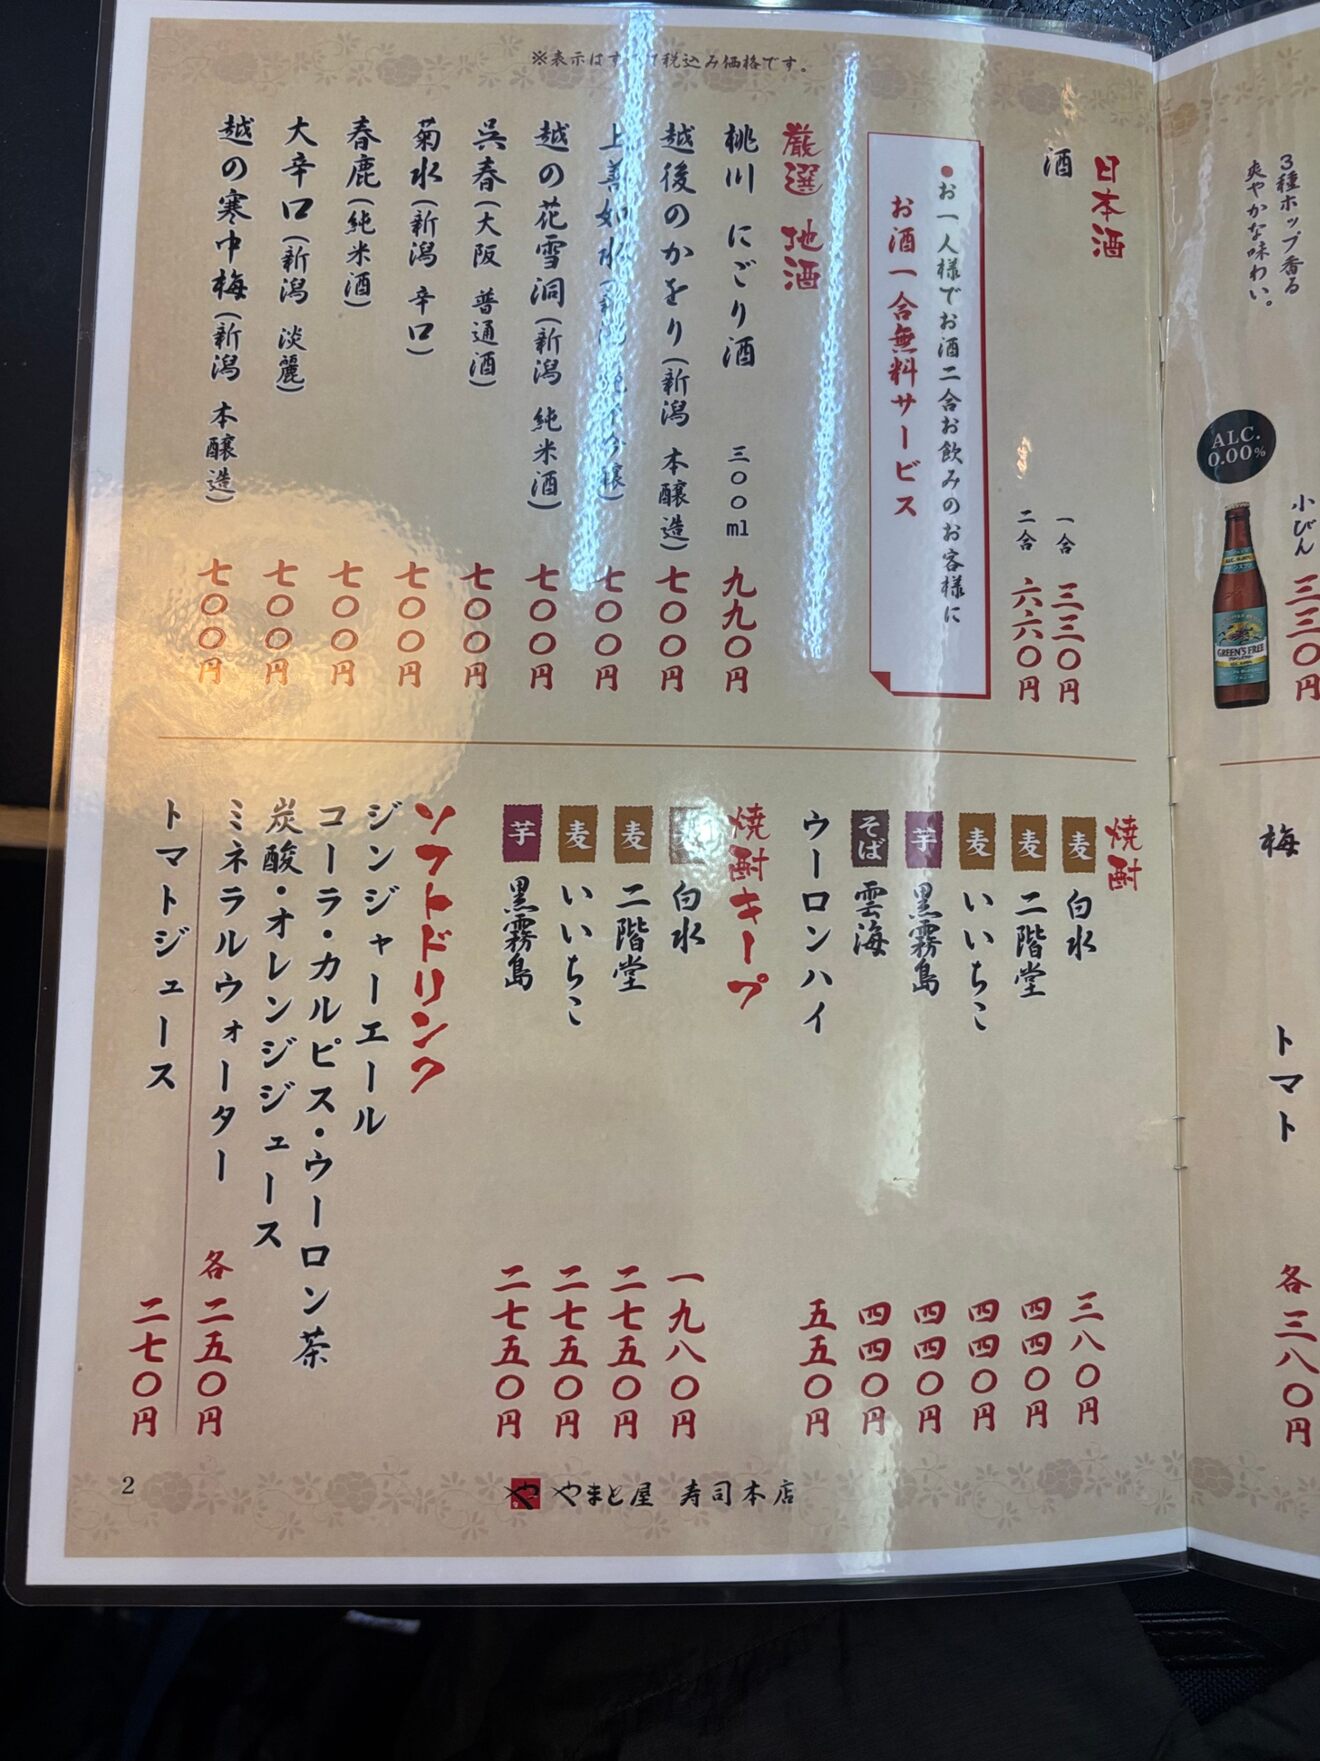 3種ホップ香る
爽やかな味わい。
ALC.
0.00%
小びん 三三〇円
GREEN'S FREE
梅
トマト
各三八〇円
※表示は 税込み価格です。
日本酒
酒 一合 三三〇円
二合 六六〇円
●お一人様でお酒二合お飲みのお客様に
お酒一合無料サービス
厳選 地酒
桃川 にごり酒 三〇〇ml 九九〇円
越後のかをり(新潟 本醸造) 七〇〇円
上善如水(新潟 純米吟醸) 七〇〇円
越の花雪洞(新潟 純米酒) 七〇〇円
呉春(大阪 普通酒) 七〇〇円
菊水(新潟 辛口) 七〇〇円
春鹿(純米酒) 七〇〇円
大辛口(新潟 淡麗) 七〇〇円
越の寒中梅(新潟 本醸造) 七〇〇円
焼酎
麦 白水 三八〇円
麦 二階堂 四四〇円
麦 いいちこ 四四〇円
芋 黒霧島 四四〇円
そば 雲海 四四〇円
ウーロンハイ 五五〇円
焼酎キープ
麦 白水 一九八〇円
麦 二階堂 二七五〇円
麦 いいちこ 二七五〇円
芋 黒霧島 二七五〇円
ソフトドリンク
ジンジャーエール
コーラ・カルピス・ウーロン茶
炭酸・オレンジジュース
ミネラルウォーター 各二五〇円
トマトジュース 二七〇円
2
や やまと屋 寿司本店